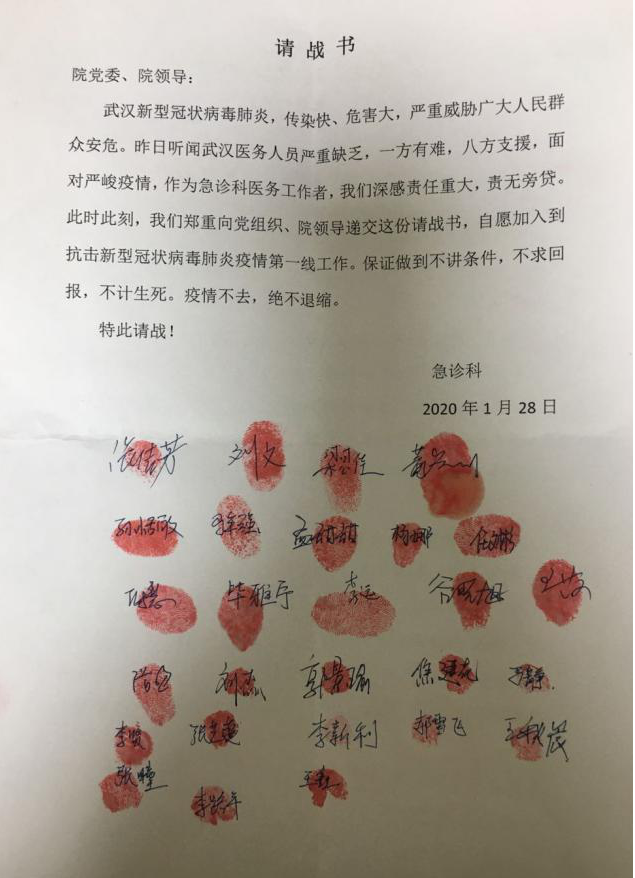 请战书
院党委、院领导：
武汉新型冠状病毒肺炎，传染快、危害大，严重威胁广大人民群
众安危。昨日听闻武汉医务人员严重缺乏，一方有难，八方支援，面
对严峻疫情，作为急诊科医务工作者，我们深感责任重大，责无旁贷。
此时此刻，我们郑重向党组织、院领导递交这份请战书，自愿加入到
抗击新型冠状病毒肺炎疫情第一线工作。保证做到不讲条件，不求回
报，不计生死。疫情不去，绝不退缩。
特此请战！
急诊科
2020 年 1 月 28 日
刘文 梁佳
杨娜
毕雅宁 李远
刘杰 郭景瑜
李新利 郝雪飞
张瞳